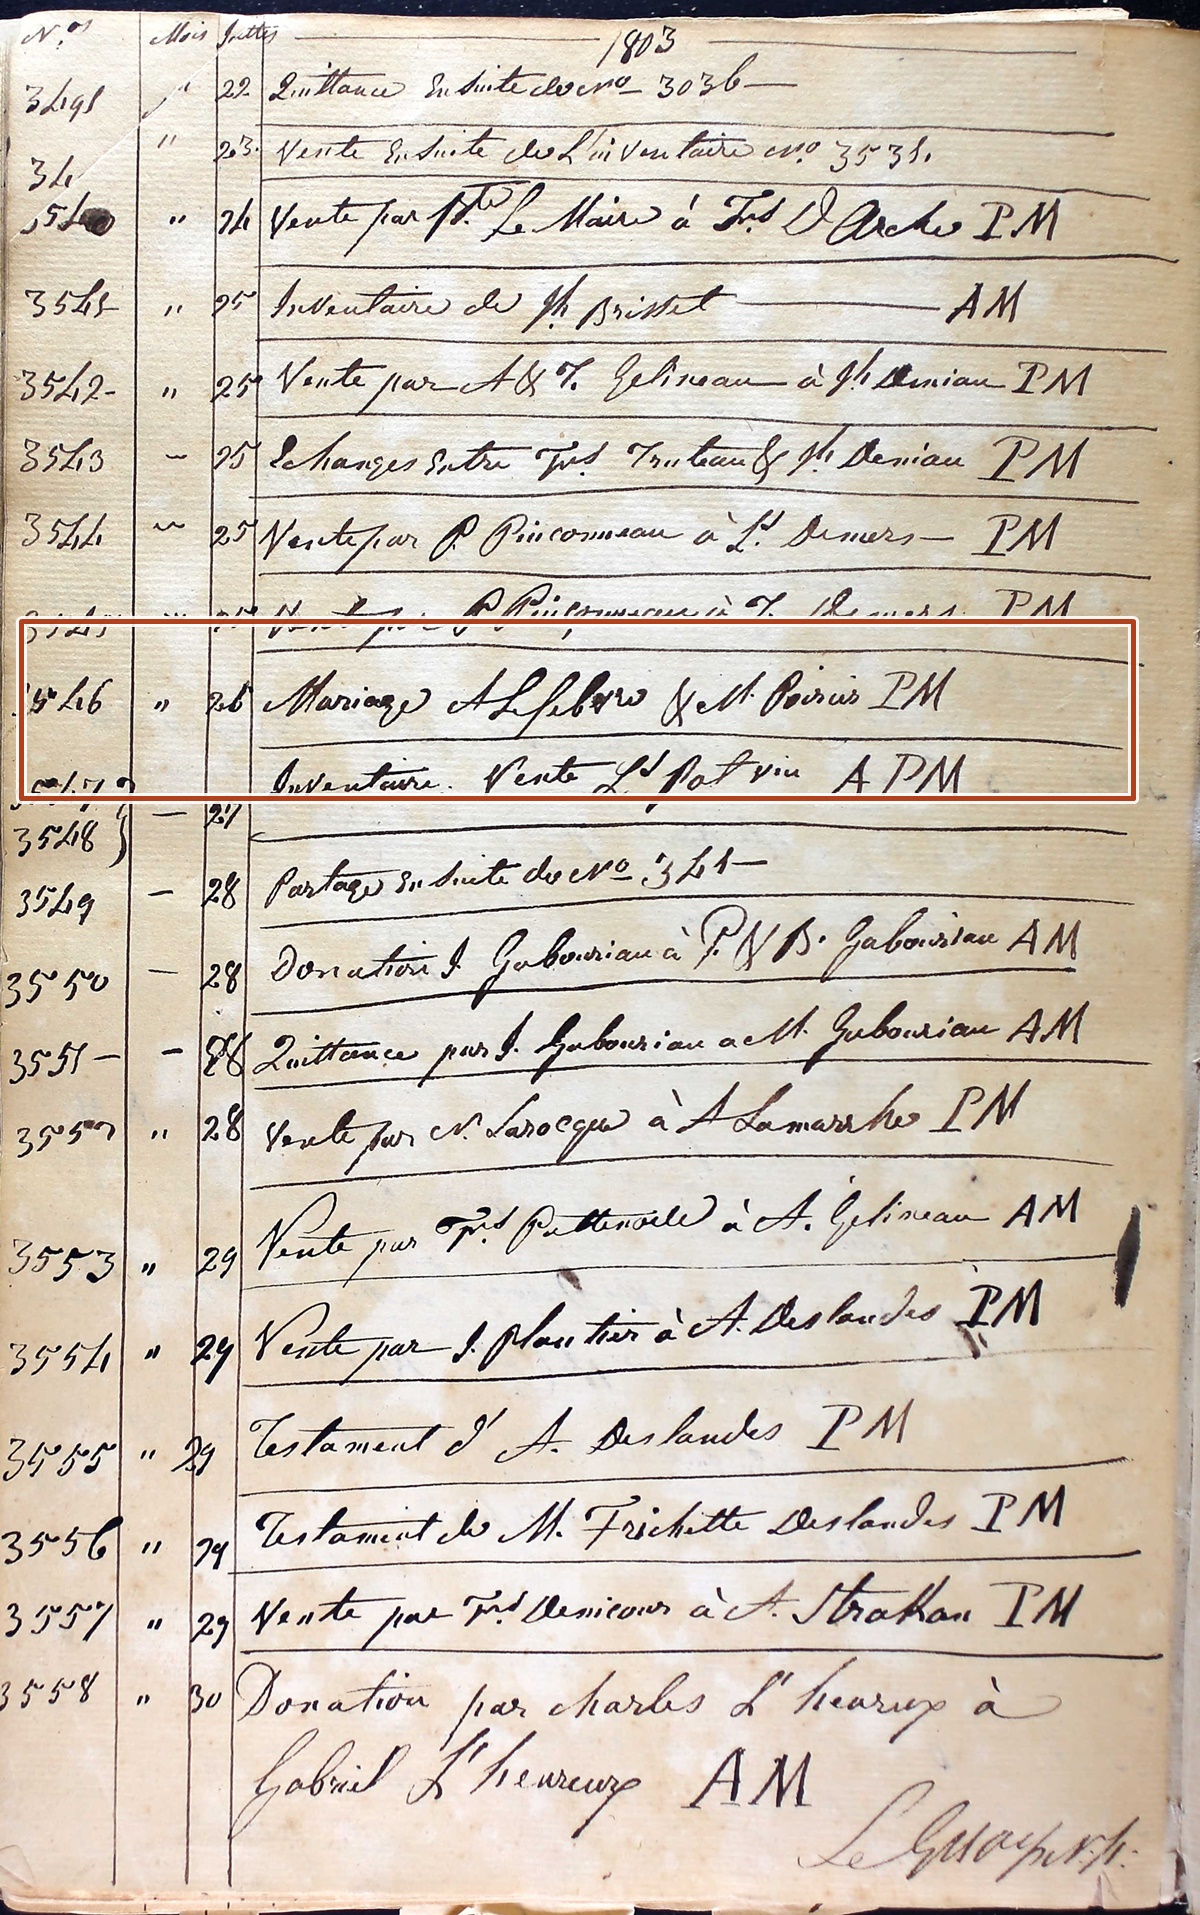 Nos Mois Juttes 1803
3491 " 22 Quittance Ensuite du No 3036
34 " 23. Vente Ensuite de L'inventaire No 3531.
3540 " 24 Vente par Bte Le Maire à Frs D'Arche PM
3541 " 25 Inventaire de Jh Brisset AM
3542 " 25 Vente par A & T. Gelineau à Jh Deniau PM
3543 " 25 Echanges Entre Frs Truteau & Jh Deniau PM
3544 " 25 Vente par P. Pinconneau à Ls Demers PM
3545 " 25 Vente par P. Pinconneau à T. Demers PM
3546 " 26 Mariage A Lefebvre & M. Poirier PM
3547 Inventaire. Vente Ls Potvin A PM
3548 } — 27
3549 — 28 Partage Ensuite du No 341
3550 — 28 Donation J. Gabouriau à P. & B. Gabouriau AM
3551 — 28 Quittance par J. Gabouriau a M. Gabouriau AM
3552 " 28 Vente par N. Larocque à A Lamarche PM
3553 " 29 Vente par Frs à A. Gelineau AM
3554 " 29 Vente par J. Plantier à A. Deslandes PM
3555 " 29 Testament d' A. Deslandes PM
3556 " 29 Testament de M. Frichette Deslandes PM
3557 " 29 Vente par Frs Denicour à A. Strakan PM
3558 " 30 Donation par Charles L'heureux à
Gabriel L'heureux AM